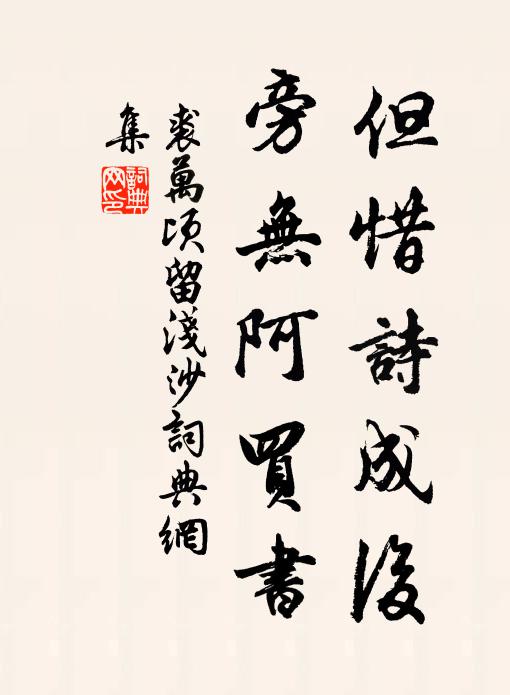 但惜詩成後
旁無阿買書
裘萬頃留淺沙詞典網
集
詞典
网印